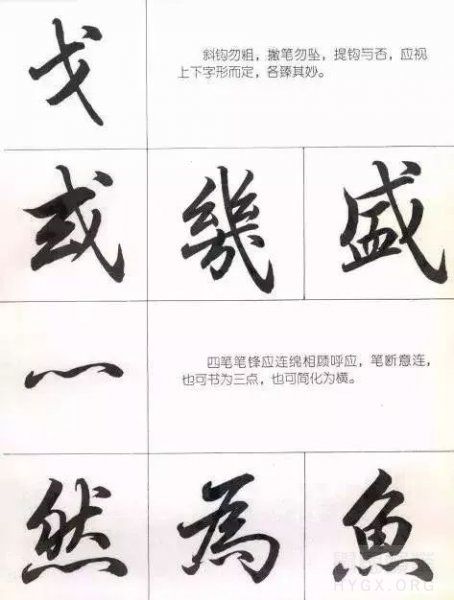 戈
斜钩勿粗，撇笔勿坠，提钩与否，应视
上下字形而定，各臻其妙。
或 幾 盛
灬
四笔笔锋应连绵相顾呼应，笔断意连，
也可书为三点，也可简化为横。
然 為 魚
HYGX.ORG